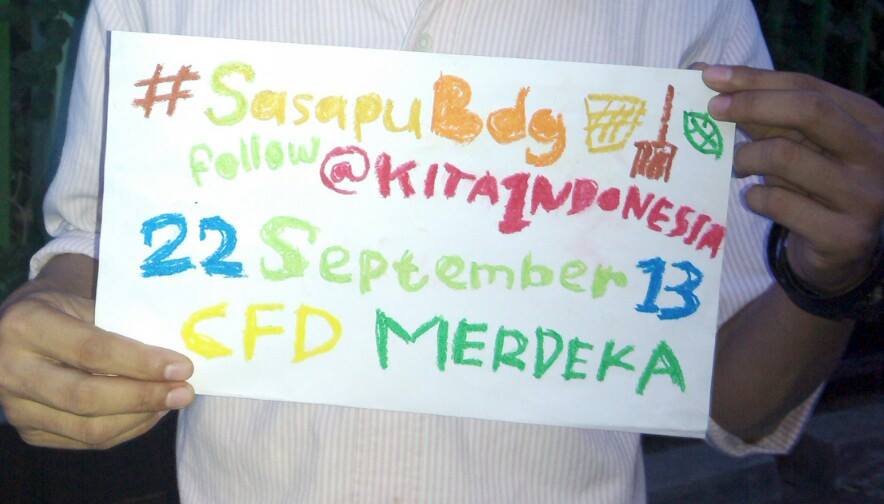 #SasapuBdg
follow @KITA1NDONESIA
22 September 13
CFD MERDEKA